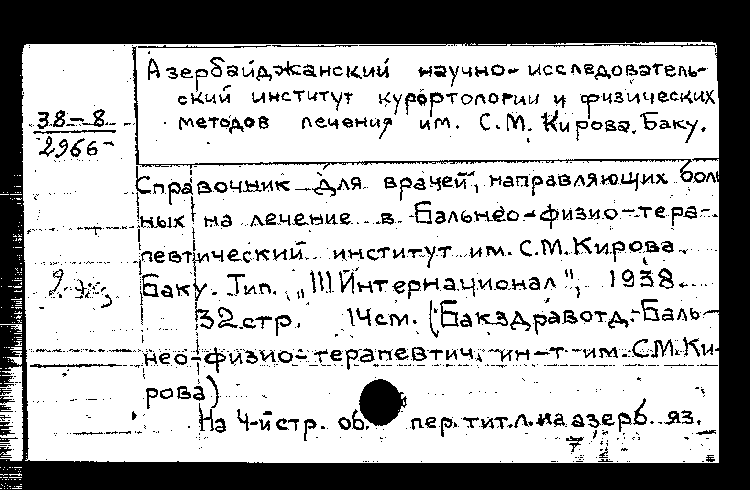 Азербайджанский научно-исследователь-
ский институт курортологии и физических
методов лечения им. С.М. Кирова. Баку.
38-8
2966
Справочник для врачей, направляющих боль
ных на лечение в Бальнео-физио-тера-
певтический институт им. С.М. Кирова.
Баку. Тип. „III Интернационал", 1938.
2 экз
32 стр. 14 см. (Бакздравотд. Баль-
нео-физио-терапевтич. ин-т им. С.М. Ки-
рова)
На 4-й стр. об. пер. тит. л. на азерб. яз.